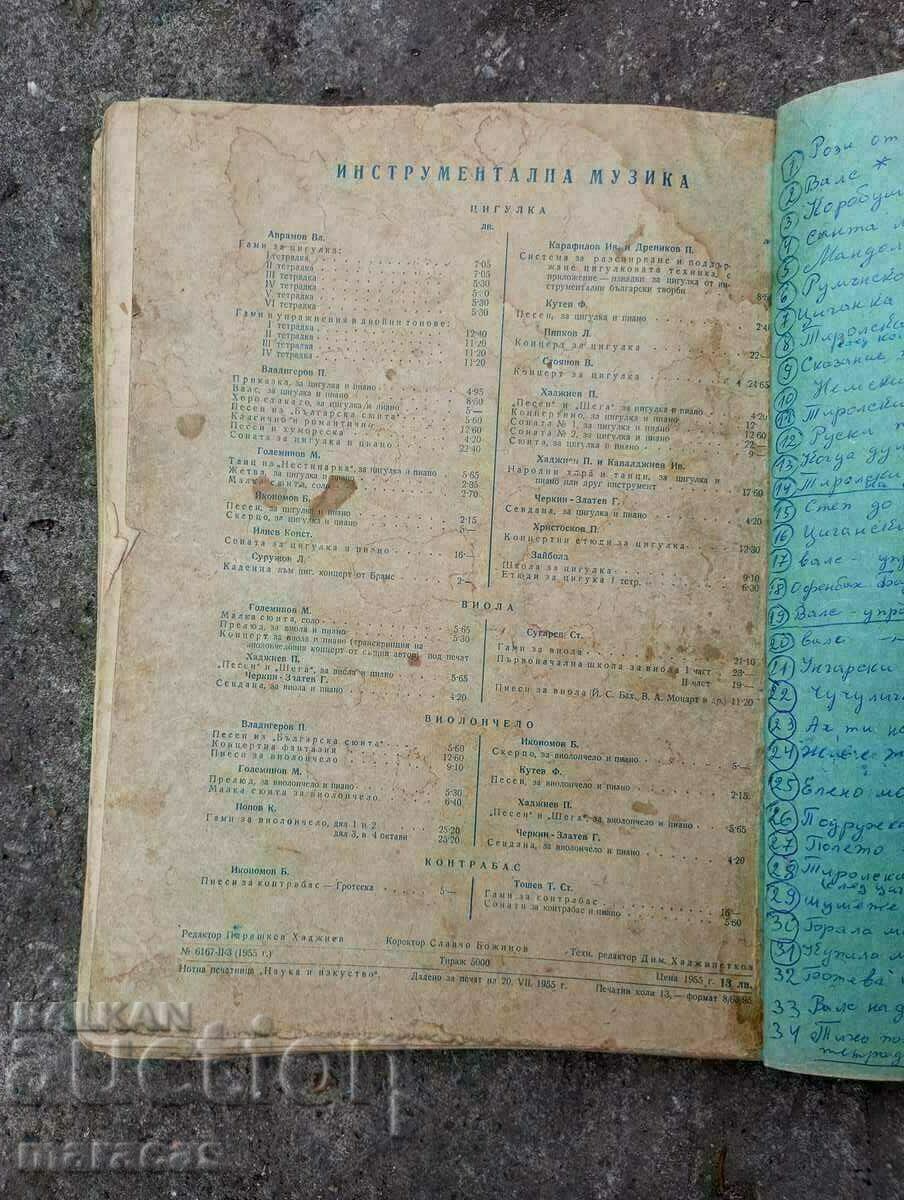 ИНСТРУМЕНТАЛНА МУЗИКА
ЦИГУЛКА
лв.
Аврамов Вл.
Гами за цигулка:
I тетрадка
II тетрадка 7·05
III тетрадка 7·05
IV тетрадка 5·30
V тетрадка
VI тетрадка 5·30
Гами и упражнения в двойни тонове:
I тетрадка
II тетрадка 12·40
III тетрадка 11·20
IV тетрадка 11·20
Владигеров П.
Приказка, за цигулка и пиано 4·95
Валс, за цигулка и пиано 8·60
Хоро стакато, за цигулка и пиано 5·—
Песен из „Българска сюита“ 5·60
Класично и романтично 12·60
Песен и хумореска 4·20
Соната за цигулка и пиано 22·40
Големинов М.
Танц из „Нестинарка“, за цигулка и пиано 5·65
Жетва, за цигулка и пиано 2·85
Малка сюита, соло 2·70
Икономов Б.
Песен, за цигулка и пиано 2·15
Скерцо, за цигулка и пиано
Илиев Конст.
Соната за цигулка и пиано 16·—
Суружон Л.
Каденца към циг. концерт от Брамс 2·—
Карафилов Ив. и Дреников П.
Система за разсвирване и поддър-
жане цигулковата техника,
приложение — извадки за цигулка от ин-
струментални български творби
Кутев Ф.
Песен, за цигулка и пиано
Пипков Л.
Концерт за цигулка 22·—
Стоянов В.
Концерт за цигулка 24·65
Хаджиев П.
„Песен“ и „Шега“ за цигулка и пиано 4·20
Концертино, за цигулка и пиано 12·
Соната № 1 за цигулка и пиано 12·60
Соната № 2, за цигулка и пиано 22·—
Сюита, за цигулка и пиано 9·—
Хаджиев П. и Кавалджиев Ив.
Народни хора и танци, за цигулка и
пиано или друг инструмент 17·60
Черкин-Златев Г.
Севдана, за цигулка и пиано 4·20
Христосков П.
Концертни етюди за цигулка 12·30
Зайболд
Школа за цигулка 9·10
Етюди за цигулка I тетр. 6·30
ВИОЛА
Големинов М.
Малка сюита, соло 5·65
Прелюд, за виола и пиано 5·30
Концерт за виола и пиано (транскрипция на
виолончеловия концерт от същия автор) под печат
Хаджиев П.
„Песен“ и „Шега“, за виола и пиано 5·65
Черкин-Златев Г.
Севдана, за виола и пиано 4·20
Сугарев Ст.
Гами за виола 21·10
Първоначална школа за виола I част 23·—
II част 19·—
Пиеси за виола (Й. С. Бах, В. А. Моцарт и др.) 11·20
ВИОЛОНЧЕЛО
Владигеров П.
Песен из „Българска сюита“ 5·60
Концертна фантазия 12·60
Пиеси за виолончело 9·10
Големинов М.
Прелюд, за виолончело и пиано 5·30
Малка сюита за виолончело 6·40
Попов К.
Гами за виолончело, два 1 и 2 25·20
два 3, в 4 октави 25·20
Икономов Б.
Скерцо, за виолончело и пиано 5·—
Кутев Ф.
Песен, за виолончело и пиано 2·15
Хаджиев П.
„Песен“ и „Шега“, за виолончело и пиано 5·65
Черкин-Златев Г.
Севдана, за виолончело и пиано 4·20
КОНТРАБАС
Икономов Б.
Пиеси за контрабас — Гротеска 5·—
Тошев Т. Ст.
Гами за контрабас 16·—
Сонати за контрабас и пиано 5·60
Редактор Парашкев Хаджиев Коректор Славчо Божинов Техн. редактор Дим. Хаджипетков
№ 6167-II-3 (1955 г.) Тираж 5000 Цена 1955 г. 13 лв.
Нотна печатница „Наука и изкуство“. Дадено за печат на 20. VII. 1955 г. Печатни коли 13,— формат 8/65/95
1 Рози от
2 Валс *
3 Коробуш
4 сюита
5 Мандол
6 Румънско
7 Циганка
8 Тиролска
9 Сказание
10 Немски
11 Тиролски
12 Руски
13 Когда ду
14 Тиролски
15 Степ до
16 Цигански
17 валс - упр
18 Офенбах
19 Валс - упра
20 валс -
21 Унгарски
22 Чучулиг
23 Ах, ти
24
25 Елено мо
26 Подружк
27 Попето
28 Тиролски
29
30 Горала
31
32
33 Валс на
34 Тихо
тетрад
BALKAN
auction
maracas